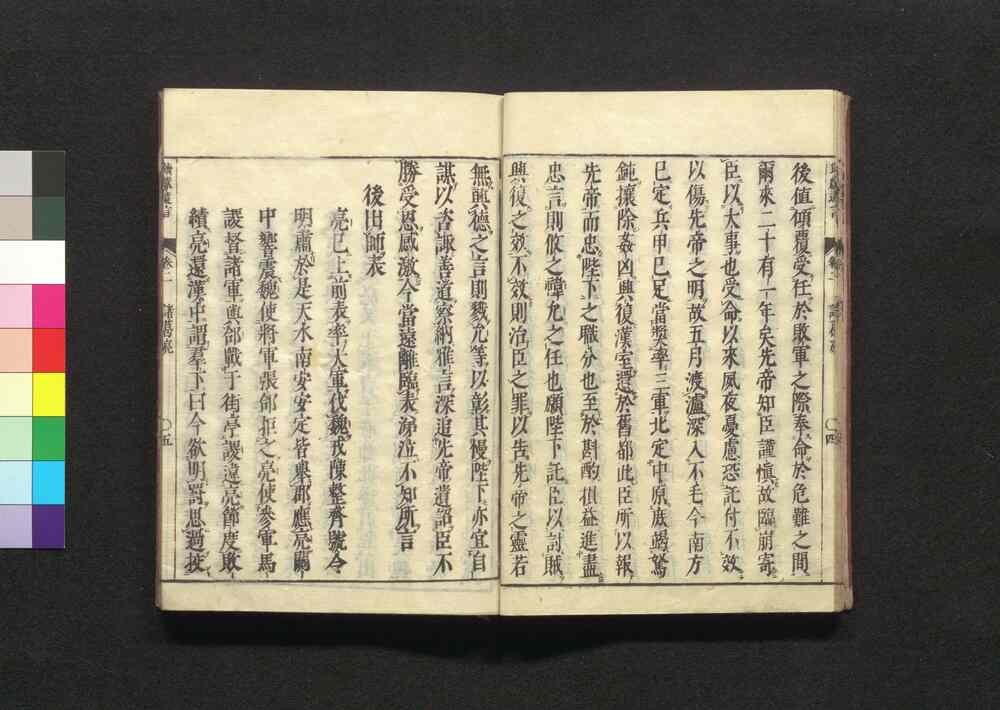 後值傾覆受任於敗軍之際奉命於危難之間
爾來二十有一年矣先帝知臣謹愼故臨崩寄
臣以大事也受命以來夙夜憂慮恐託付不效
以傷先帝之明故五月渡瀘深入不毛今南方
已定兵甲已足當奬率三軍北定中原庶竭駑
鈍攘除姦凶興復漢室還於舊都此臣所以報
先帝而忠陛下之職分也至於斟酌損益進盡
忠言則攸之禕允之任也願陛下託臣以討賊
興復之效不效則治臣之罪以告先帝之靈若
無興德之言則戮允等以彰其慢陛下亦宜自
謀以咨諏善道察納雅言深追先帝遺詔臣不
勝受恩感激今當遠離臨表涕泣不知所言
後出師表
亮已上前表率大軍伐魏戎陳整齊號令
明肅於是天水南安安定皆舉郡應亮關
中響震魏使將軍張郃拒之亮使參軍馬
謖督諸軍與郃戰于街亭謖違亮節度敗
績亮還漢中謂羣下曰今欲明罰思過校
卷二 諸葛亮 〇五
〇四